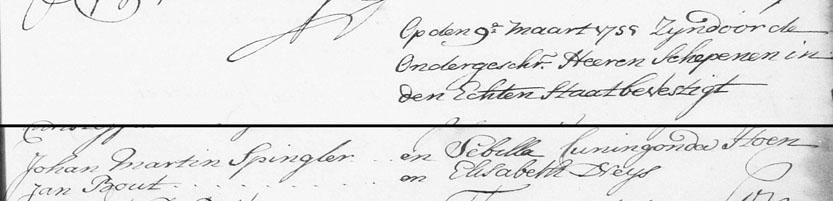 Op den 9e Maart 1755 Zyn door de
Ondergeschr. Heeren Schepenen in
den Echten Staat bevestigt
Johan Martin Spingler . . en Sebilla Cuningonda Hoen
Jan Bout . . . . . . . . en Elisabeth Neys